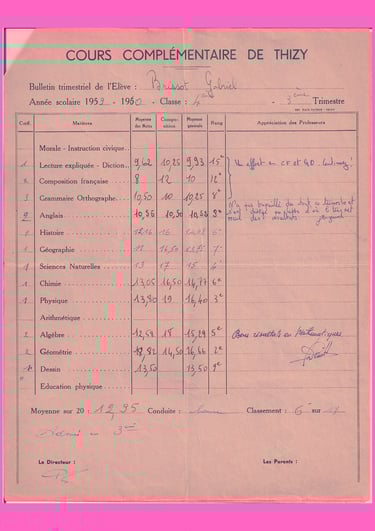 COURS COMPLÉMENTAIRE DE THIZY
Bulletin trimestriel de l'Elève : Brissot Gabriel
Année scolaire 1959 - 1960 - Classe : 4ème 3ème Trimestre
Coef. Matières Moyenne des Notes Composition Moyenne générale Rang Appréciation des Professeurs
Morale - Instruction civique
1 Lecture expliquée - Diction 9,62 10,25 9,93 15e Un effort en CF et GO. Continuez !
2 Composition française 8 12 10 12e
3 Grammaire Orthographe 10,50 10 10,25 8e
2 Anglais 10,36 10,50 10,43 9e
1 Histoire 16
1 Géographie 11 16,50 13,75 7e
1 Sciences Naturelles 13 17 15 6e
1 Chimie 13,05 16,50 14,77 6e
1 Physique 13,80 19 16,40 3e
Arithmétique
2 Algèbre 12,59 18 15,29 5e Bons résultats en mathématiques
2 Géométrie 14,50 2e
1 Dessin 13,50 13,50 9e
Education physique
Moyenne sur 20 : 12,95 Conduite : Bonne Classement : 6e sur
Admis en 3ème
Le Directeur : Les Parents :